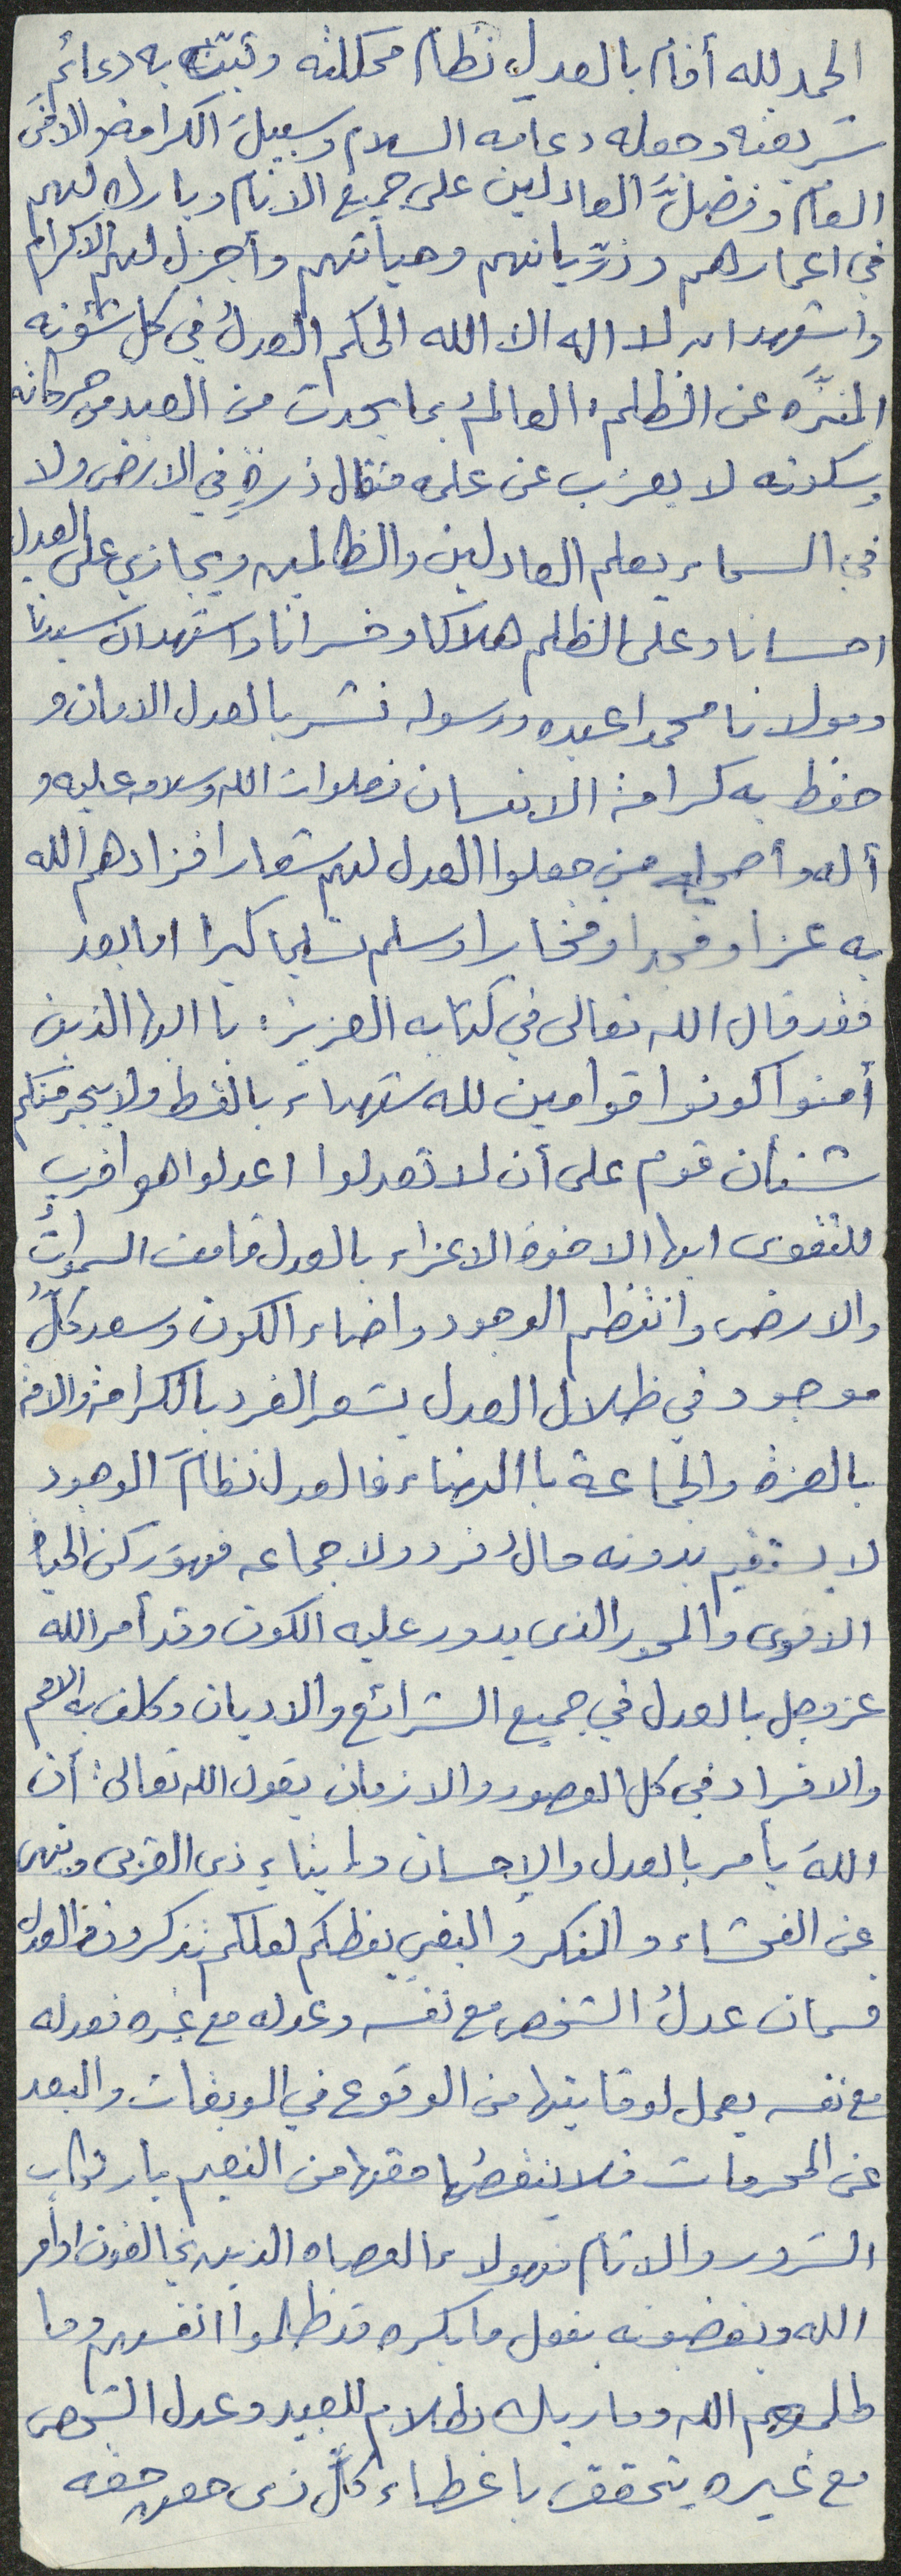 الحمد لله أقام بالعدل نظام مملكته وثبت به دعائم
شريعته وجعله دعامه السلام وسبيل الكرامة والامن
العام وفضلَّ العادلين على جميع الانام وبارك لهم
في اعمارهم وذرّياتهم وحياتهم وأجزل لهم الاكرام
واشهد ان لا اله الا الله الحكم العدلُ في كل شئونه
المنزَّه عن الظلم، العالمُ بما يحدث من العبد من حركاته
وسكونه لا يعزب عن علمه مثقال ذرةٍ في الارض ولا
في السماء يعلم العادلين والظالمين ويجازي على العدل
احسانا وعلى الظلم هلاكا وخسرانا واشهد ان سيدنا
ومولانا محمدا عبده ورسوله نشر بالعدل الامان و
حفظ به كرامة الانسان فصلوات الله وسلامه عليه و
أله وأصحابه من جعلوا العدل لهم شعارا فزادهم الله
به عزا ومجدا وفخارا وسلم تسليما كيرا اما بعد
فقد قال الله تعالى في كتابه العزيز: يا ايها الذين
أمنوا كونوا قوامين لله شهداء بالقسط ولا يجرمنكم
شنأن قوم على أن لا تعدلوا اعدلوا هو اقرب
للتقوى ايها الاخوة الاعزاء بالعدل قامت السمواتُ
والارض وانتظم الوجود واضاء الكون وسعد كلُّ
موجود في ظلال العدل يشعر الفرد بالكرامة والامة
بالعزة والجماعة باالهناء فالعدل نظامَ الوجود
لا يستقيم بدونه حالُ فرد ولا جماعه فهو ركن الحياة
الاقوى والمحور الذى يدور عليه الكون وقد أمر الله
عز وجل بالعدل في جميع الشرائع والاديان وكلف به الامم
والافراد في كل العصور والازمان يقول الله تعالى: أن
اللهَ يأمر بالعدل والإحسان وإيتاءِ ذي القربى وينهى
عن الفحشاء والمنكر والبغي يعظكم لعلكم تذكرون والعدل
قسمان عدلُ الشخص مع نفسه وعدله مع غيره فعدله
مع نفسه يعمل لوقايتها من الوقوع في الموبقات والبعد
عن المحرمات فلا ينقصُها حقها من النعيم بارتكاب
الشرور والاثام فهولاء العصاه الذين يخالفون اوامر
الله ويغضبونه بفعل ما يكره قد ظلموا انفسهم وما
ظلمهم الله وما ربك بظلام للعبيد وعدل الشخص
مع غيره يتحقق باعطاء كلِّ ذى حقٍ حقه